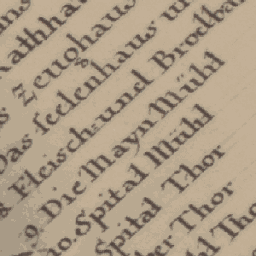 athha
Zeughaus
Das seelenhaus un
Fleisch und Brodba
9 Die Mayn Mühl
10. Spital Mühl
Spital Thor
Thor
Tho